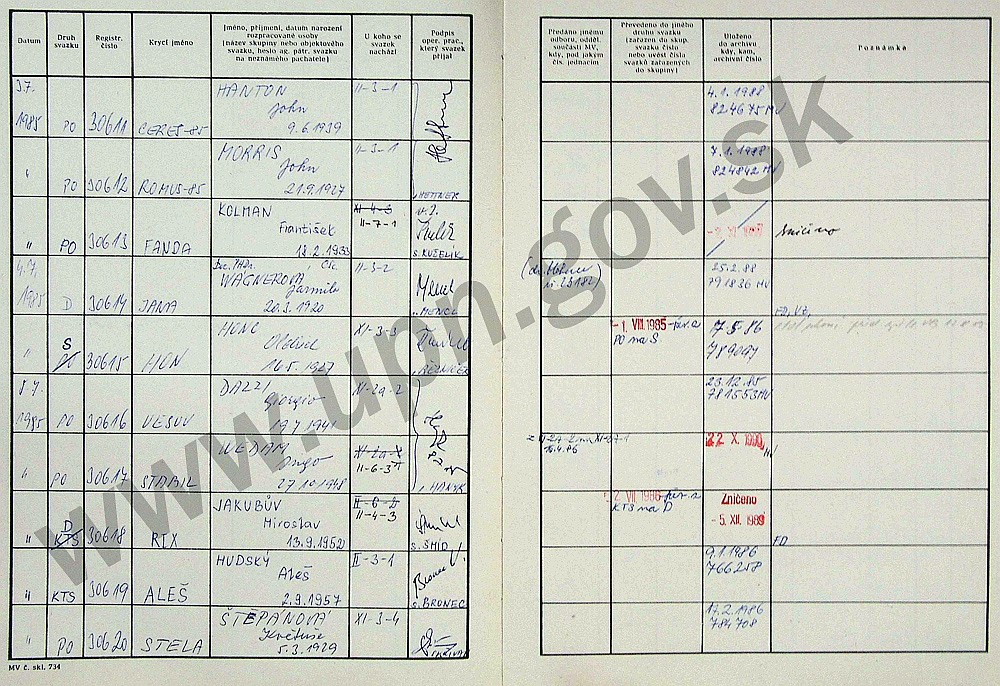 Datum
Druh
svazku
Registr.
číslo
Krycí jméno
Jméno, příjmení, datum narození
rozpracované osoby
(název skupiny nebo objektového
svazku, heslo ag. pátr. svazku
na neznámého pachatele)
U koho se
svazek
nachází
Podpis
oper. prac.,
který svazek
přijal
Předáno jinému
odboru, odděl.
součásti MV,
kdy, pod jakým
čís. jednacím
Převedeno do jiného
druhu svazku
(zařazen do skup.
svazku číslo
nebo uvést číslo
svazků zařazených
do skupiny)
Uloženo
do archivu
kdy, kam,
archivní číslo
Poznámka
3.7. HANTON II-3-1 4.1.1988
John 824675 MV
1985 PO 30611 CERES-85 9.6.1939
MORRIS II-3-1 7.1.1988
John 824842 MV
" PO 30612 ROMUS-85 21.9.1927 HEFTNER
KOLMAN XI-4-3 v.z.
František II-7-1 Zničeno
" PO 30613 FANDA 18.2.1933 s. KUŽELÍK
4.7. Doc. PhDr. CSc. II-3-2 25.2.88
WAGNEROVÁ Jarmila 791836 MV
1985 D 30614 JANA 20.3.1920 MENCL
HONC XI-3-3 - 1. VIII. 1985 17.5.86
S Oldřich PO na S
" PO 30615 HON 16.5.1927 ŘEZNÍČEK
8.7. DAZZI XI-2a-2 23.12.85
Giorgio 781553 MV
1985 PO 30616 VESUV 19.7.1941
WEDAM XI-2a-2 22. X. 1990
Ingo II-6-3 16.4.86
" PO 30617 STABIL 27.10.1948 HANYK
JAKUBŮV II-6-2 2. VII. 1986 Zničeno
D Miroslav II-4-3 KTS na D - 5. XII. 1989
" KTS 30618 RIX 13.9.1952 s. ŠMÍD
HUDSKÝ II-3-1 9.1.1986
Aleš 766258
" KTS 30619 ALEŠ 2.9.1957 s. BRONEC
ŠTĚPÁNOVÁ XI-3-4 17.2.1986
Květuše 784708
" PO 30620 STELA 5.3.1929
MV č. skl. 734
www.upn.gov.sk